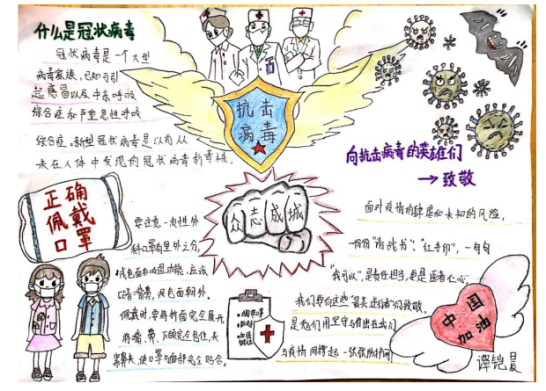 什么是冠状病毒
冠状病毒是一个大型
病毒家族,已知可引
起感冒以及中东呼吸
综合征和严重急性呼吸
综合症。新型冠状病毒是以前从
未在人体中发现的冠状病毒新毒株。
抗击
病毒
向抗击病毒的英雄们
→致敬
正确
佩戴
口罩
众志成城
面对疫情的肆虐和未知的风险,
一份份"请战书";"红手印",一句句
"我可以",是责任担当,更是医者仁心。
我们要向这些"最美逆行者"们致敬,
是他们用坚守与付出在我们
与疫情间撑起一张张防护网
要注意一次性外
科口罩有里外之分,
浅色面
应该
贴着鼻
,深色面朝外。
佩戴时,要将折面完全展开,
将嘴、鼻、下颌完全包住,
使口罩与面部完全贴合。
中国
加油
谭铠昊